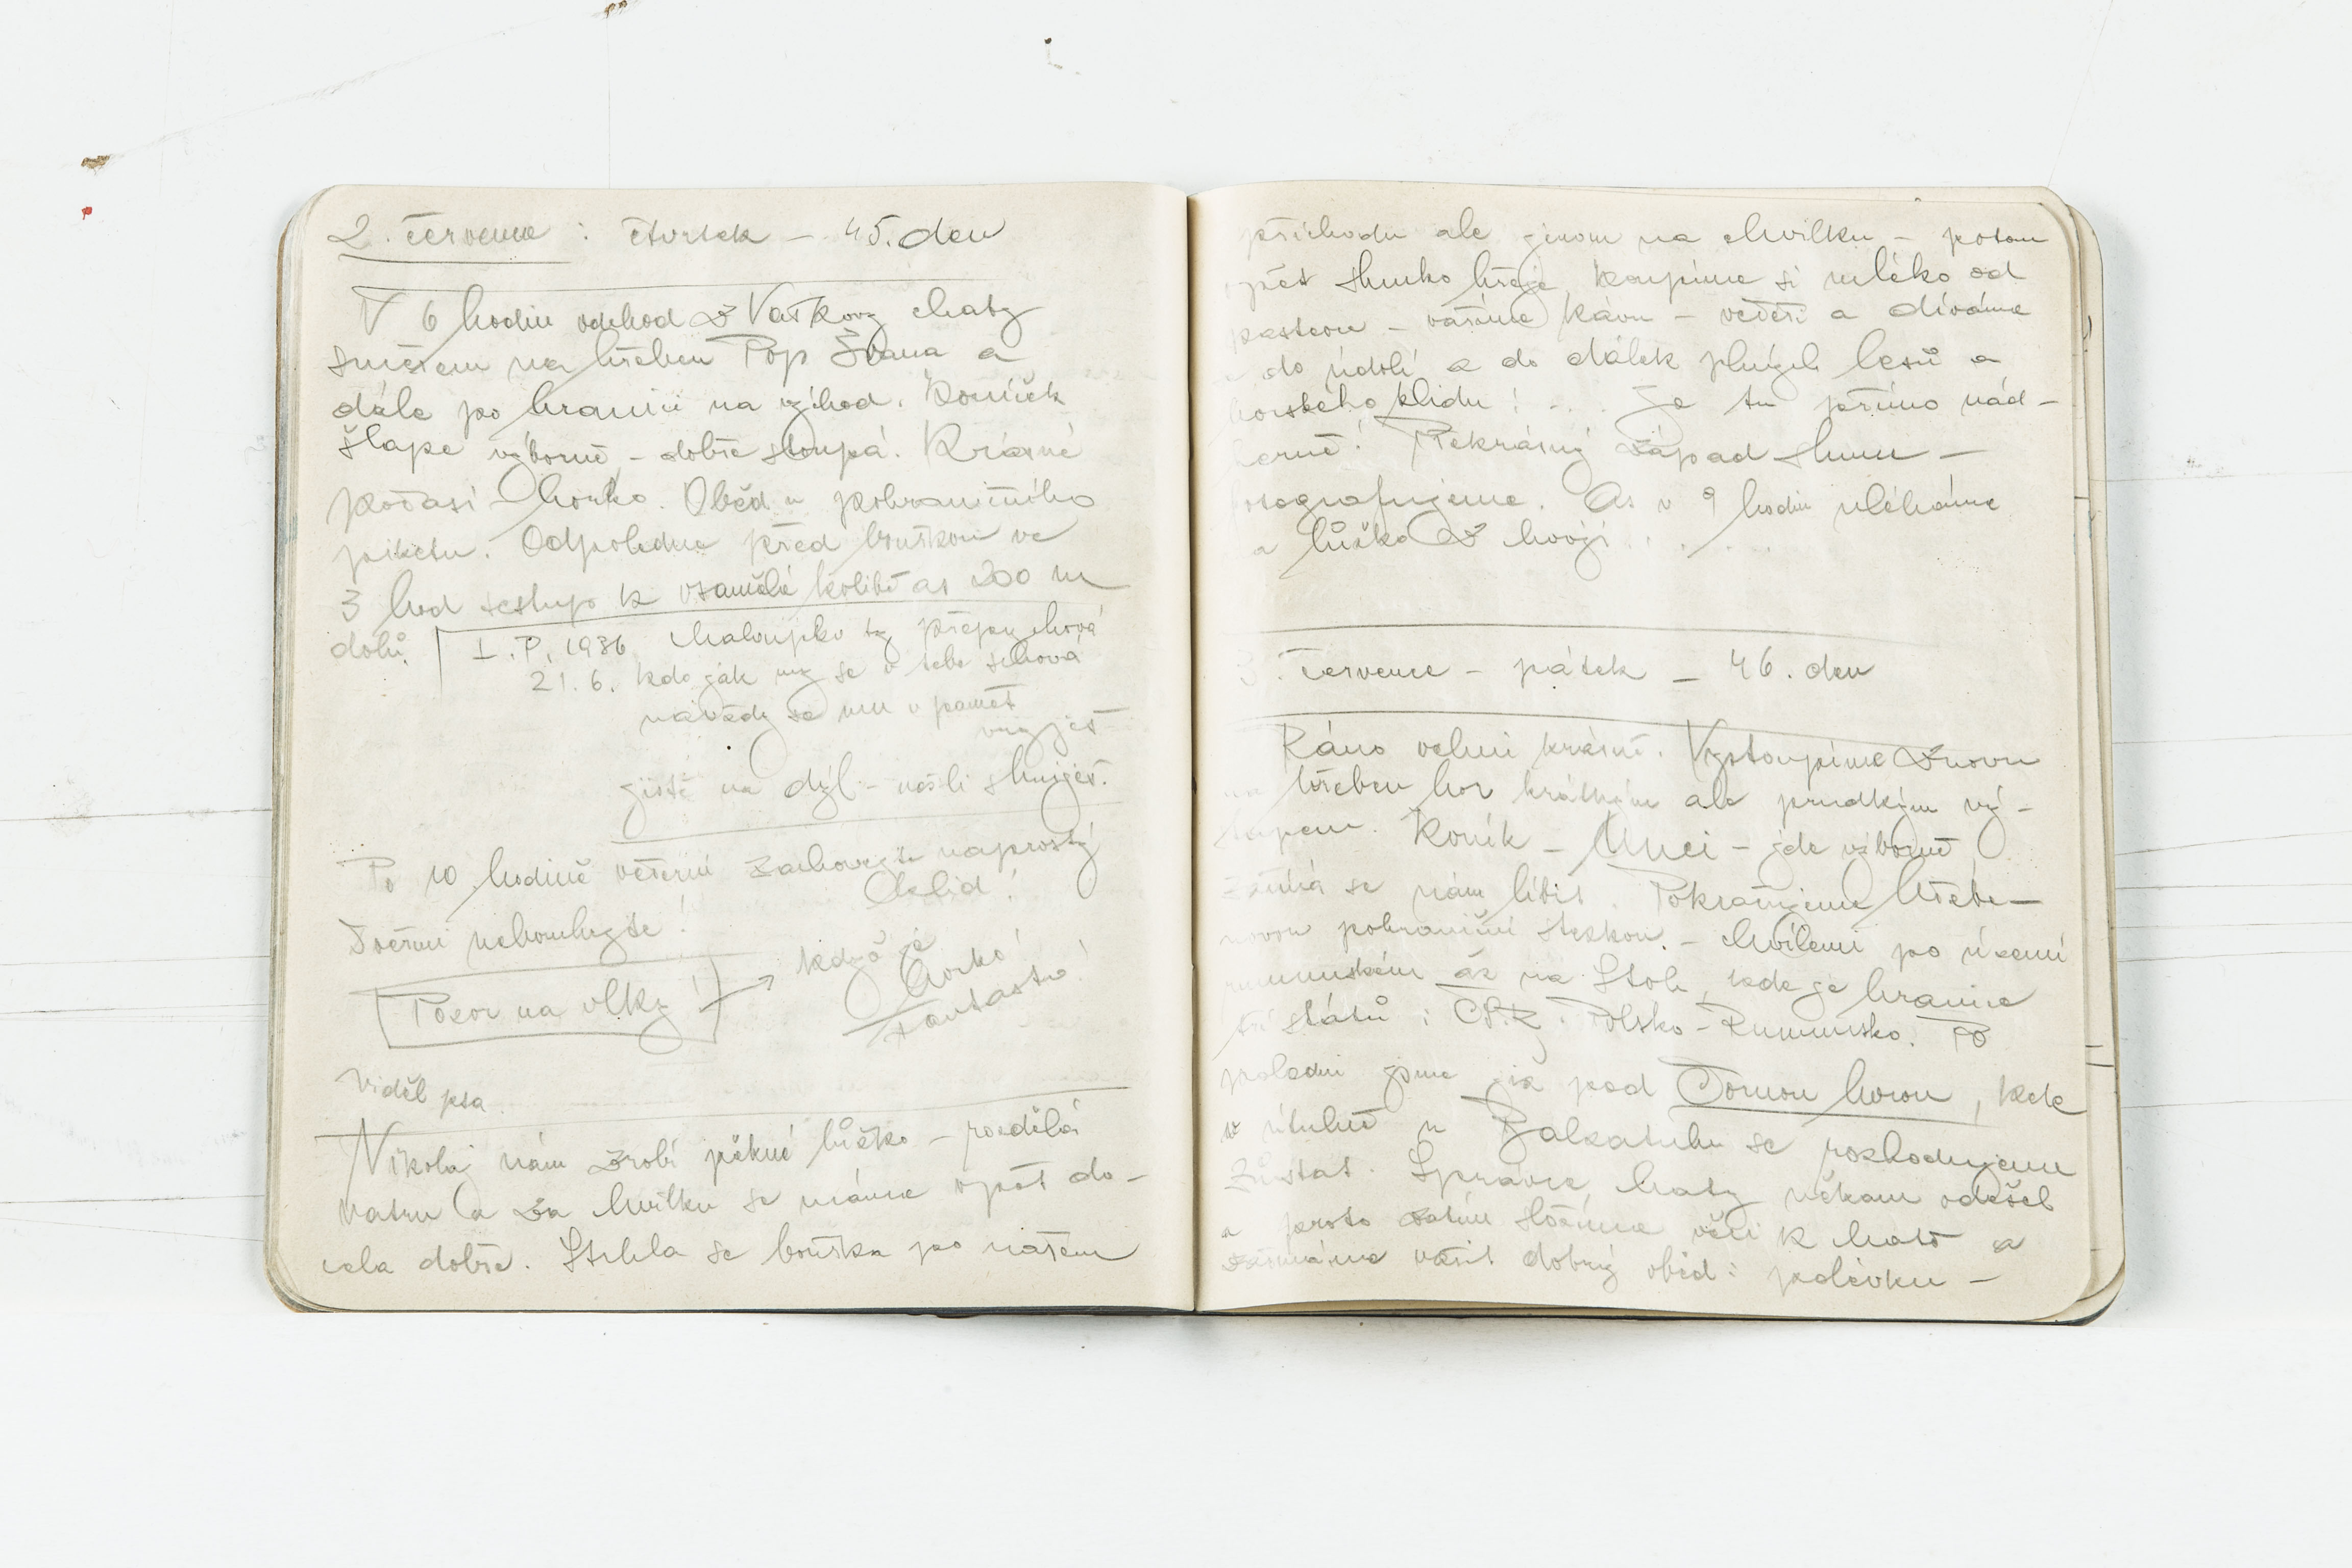 2. července : čtvrtek – 45. den
V 6 hodin odchod z Vaškovy chaty
směrem na hřeben Pop Ivana a
dále po hranici na východ. Koníček
šlape výborně, – dobře stoupá. Krásné
počasí – horko. Oběd u pohraničního
piketu. Odpoledne před bouřkou ve
3 hod sestup k osamělé kolibě as 200 m
dolů.
I. P. 1936 chaloupko ty přepychová
21. 6. kdo jak my se v tebe schová
navždy se mu v pamět
vryješ
jistě na dýl – nežli shniješ.
Po 10 hodině večerní zachovejte naprostý
klid!
Dveřmi nebouchejte!
Pozor na vlky! → když je
horko!
Fantasta!
Viděl psa
Nikolaj nám zrobí pěkné lůžko – rozdělá
vatru a za chvilku se máme opět do-
cela dobře. Strhla se bouřka po našem
příchodu ale jenom na chvilku – potom
opět slunko hřeje. Koupíme si mléko od
pastevců – vaříme kávu – večeři a díváme
do údolí a do dálek plných lesů a
horského klidu! . . . Je tu přímo nád-
herně! Překrásný západ slunce –
fotografujeme. As v 9 hodin uléháme
a lůžko z hvojí . . . . .
3. července – pátek – 46. den
Ráno velmi krásné. Vystoupíme znovu
na hřeben hor krátkým ale prudkým vý-
stupem. Koník – Unci – jde výborně
začíná se nám líbit. Pokračujeme hřebe-
novou pohraniční stezkou. – chvílemi po území
rumunském až na Stoh, kde je hranice
tří států : ČSR. Polsko – Rumunsko. Po
poledni jsme již pod Černou horou, kde
v útulně u Balzatulu se rozhodujeme
zůstat. Správce chaty někam odešel
a proto zatím složíme věci k chatě a
začínáme vařit dobrý oběd : polévku –